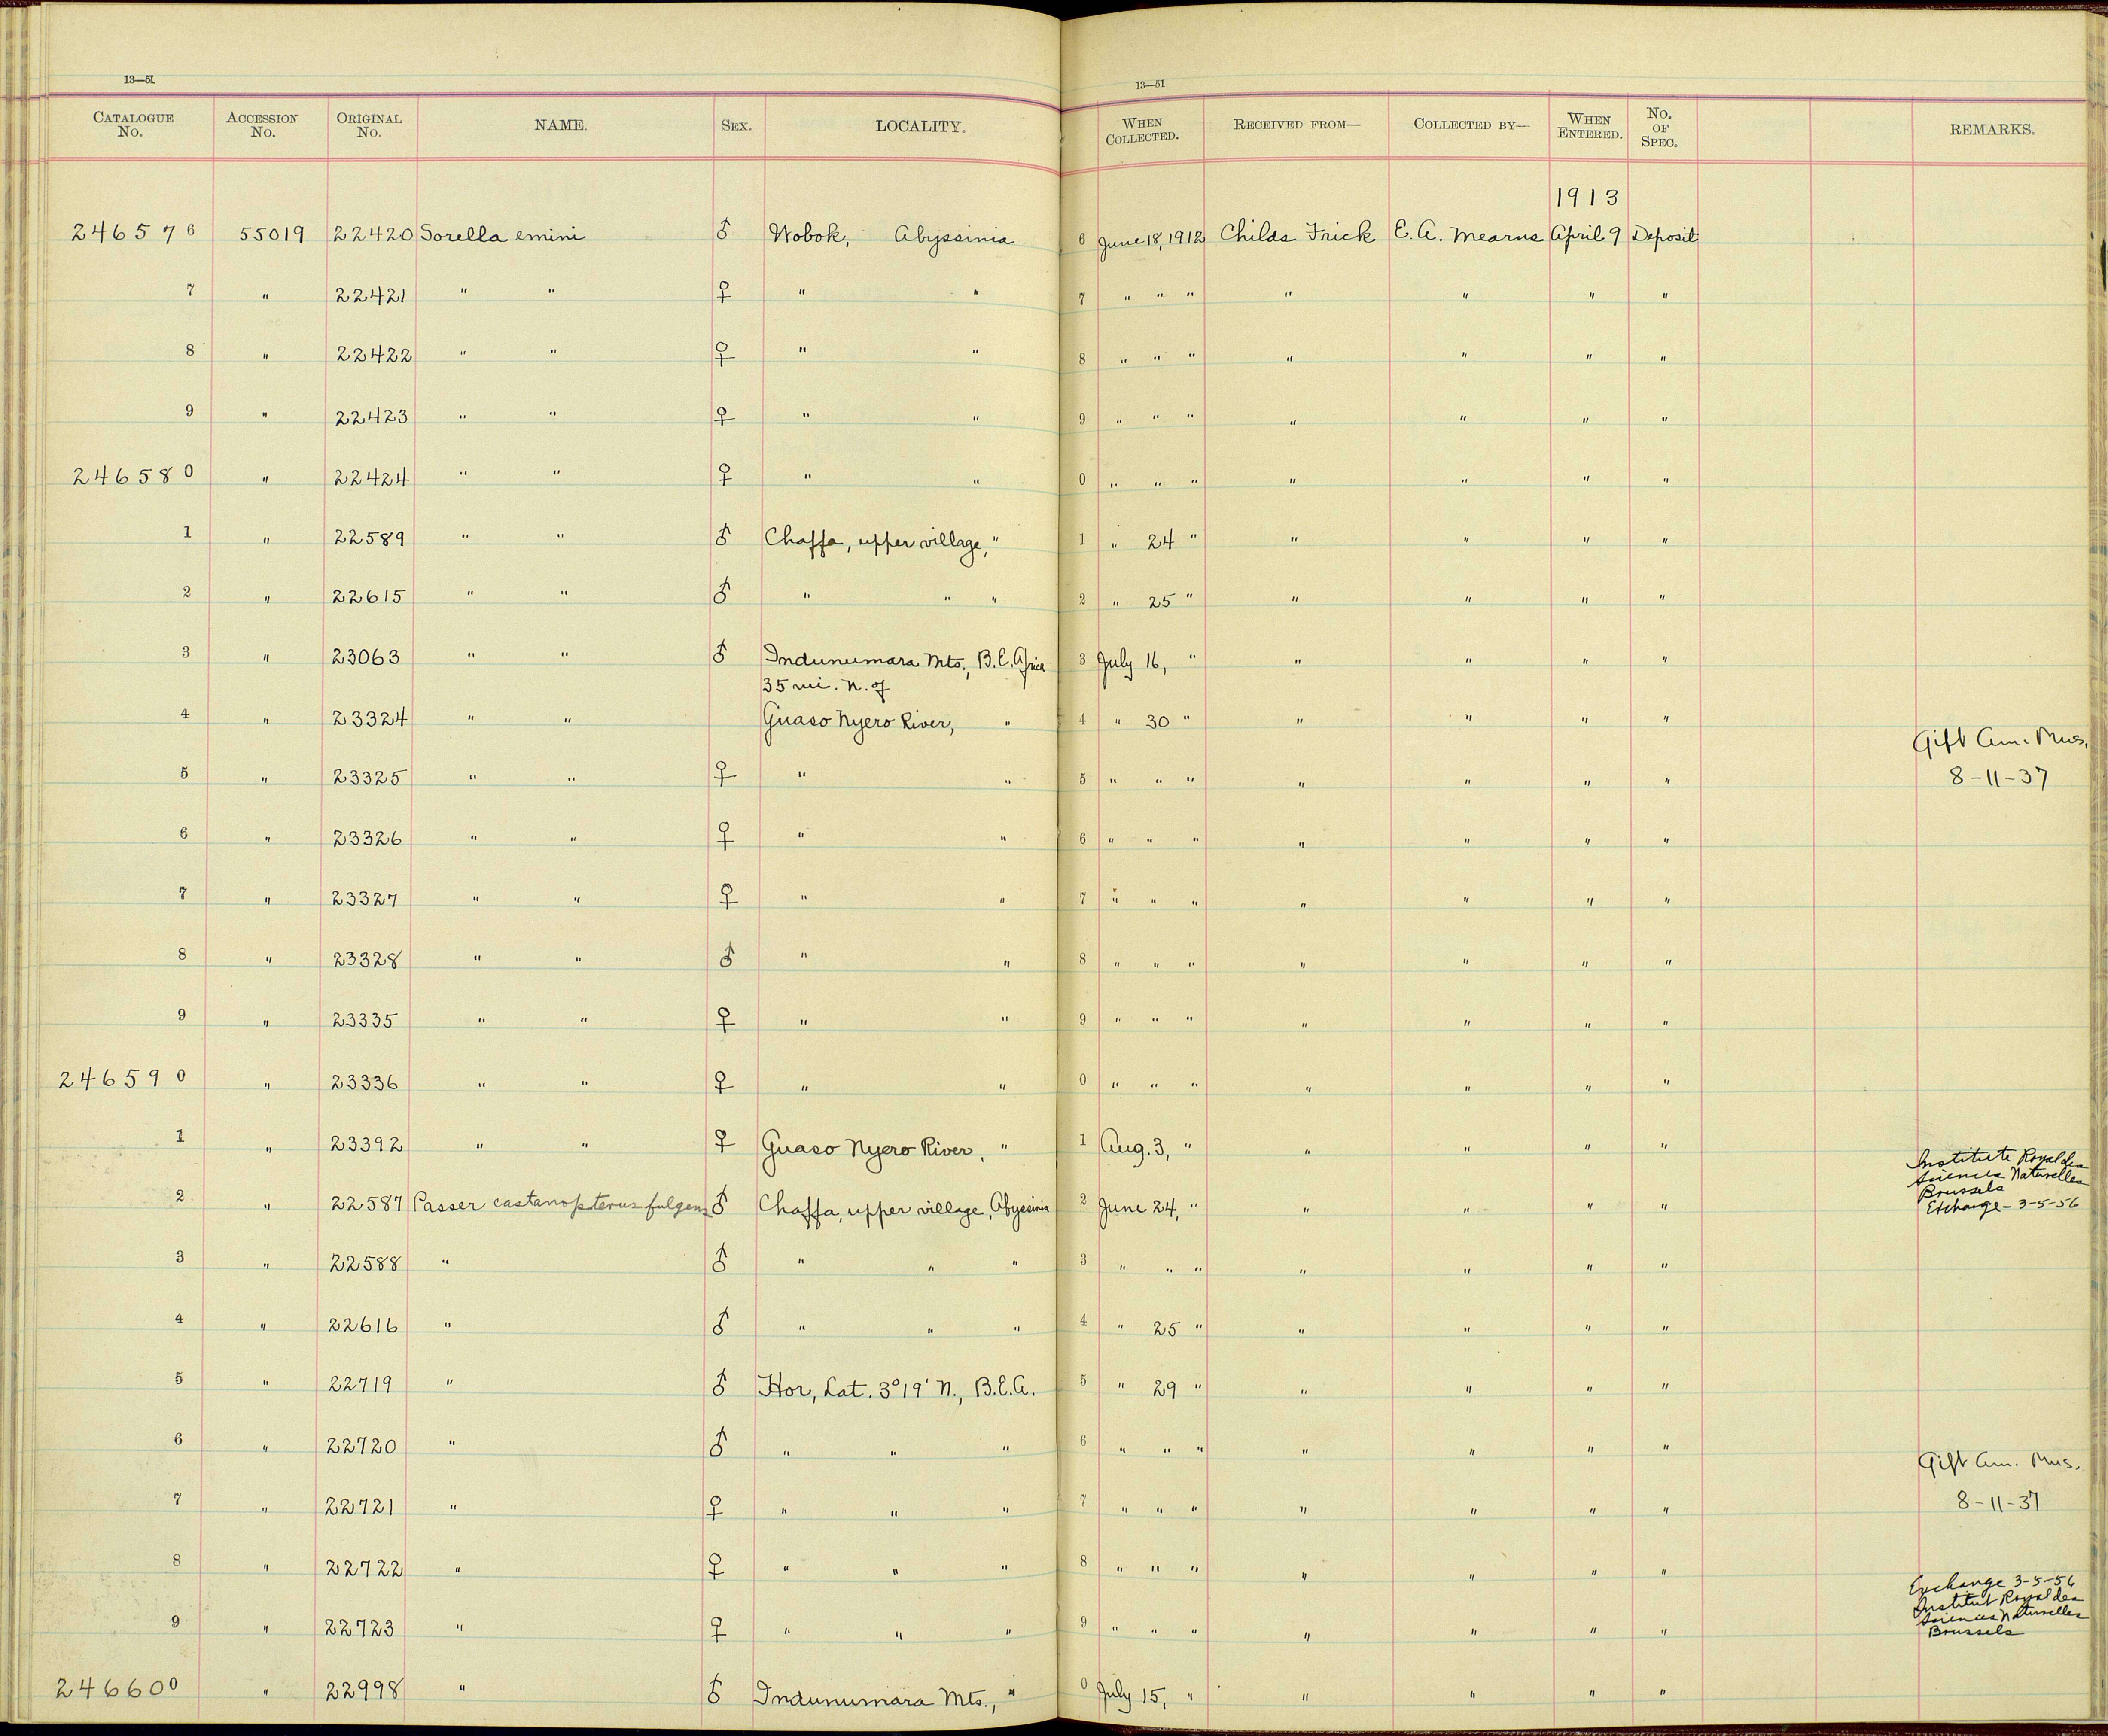 13—51
13—51
CATALOGUE No. ACCESSION No. ORIGINAL No. NAME. SEX. LOCALITY. WHEN COLLECTED. RECEIVED FROM— COLLECTED BY— WHEN ENTERED. No. OF SPEC. REMARKS.
1913
246576 55019 22420 Sorella emini ♂ Wobok, Abyssinia 6 June 18, 1912 Childs Frick E. A. Mearns April 9 Deposit
7 " 22421 " " ♀ " " 7 " " " " " " "
8 " 22422 " " ♀ " " 8 " " " " " " "
9 " 22423 " " ♀ " " 9 " " " " " " "
246580 " 22424 " " ♀ " " 0 " " " " " " "
1 " 22589 " " ♂ Chaffa, upper village, " 1 " 24 " " " " "
2 " 22615 " " ♂ " " " 2 " 25 " " " " "
3 " 23063 " " ♂ Indunumara Mts., B.E. Africa 3 July 16, " " " " "
35 mi. N. of
4 " 23324 " " Guaso Nyero River, " 4 " 30 " " " " "
Gift Am. Mus.
5 " 23325 " " ♀ " " 5 " " " " " " " 8-11-37
6 " 23326 " " ♀ " " 6 " " " " " " "
7 " 23327 " " ♀ " " 7 " " " " " " "
8 " 23328 " " ♂ " " 8 " " " " " " "
9 " 23335 " " ♀ " " 9 " " " " " " "
246590 " 23336 " " ♀ " " 0 " " " " " " "
1 " 23392 " " ♀ Guaso Nyero River, " 1 Aug. 3, " " " " "
Institute Royal des
Sciences Naturelles
Brussels
2 " 22587 Passer castanopterus fulgens ♂ Chaffa, upper village, Abyssinia 2 June 24, " " " " " Exchange - 3-5-56
3 " 22588 " ♂ " " " 3 " " " " " " "
4 " 22616 " ♂ " " " 4 " 25 " " " " "
5 " 22719 " ♂ Hor, Lat. 3°19' N., B.E.A. 5 " 29 " " " " "
6 " 22720 " ♂ " " " 6 " " " " " " "
Gift Am. Mus.
7 " 22721 " ♀ " " " 7 " " " " " " " 8-11-37
8 " 22722 " ♀ " " " 8 " " " " " " "
Exchange 3-5-56
Institut Royal des
Sciences Naturelles
9 " 22723 " ♀ " " " 9 " " " " " " " Brussels
246600 " 22998 " ♂ Indunumara Mts., " 0 July 15, " " " " "